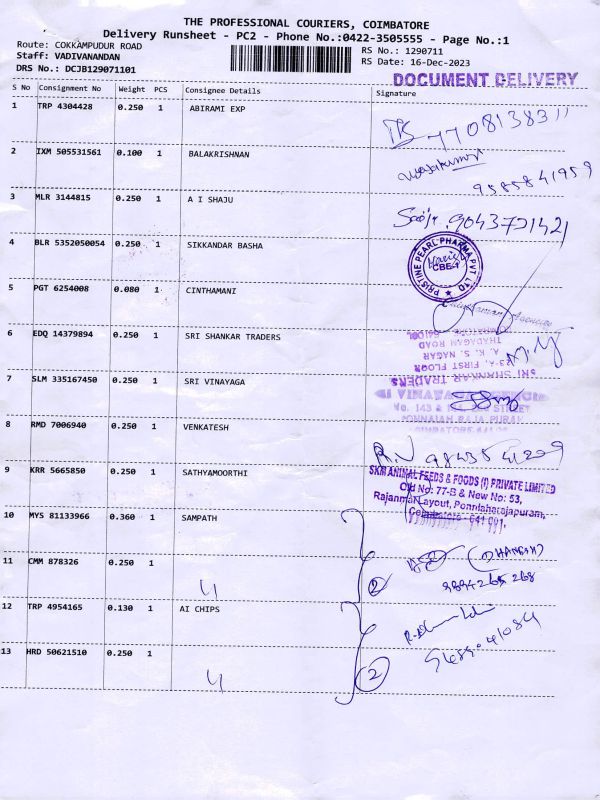 THE PROFESSIONAL COURIERS, COIMBATORE
Delivery Runsheet - PC2 - Phone No.:0422-3505555 - Page No.:1
Route: COKKAMPUDUR ROAD
Staff: VADIVANANDAN
DRS No.: DCJB129071101
RS No.: 1290711
RS Date: 16-Dec-2023
DOCUMENT DELIVERY
S No Consignment No Weight PCS Consignee Details Signature
1 TRP 4304428 0.250 1 ABIRAMI EXP
7708138311
2 IXM 505531561 0.100 1 BALAKRISHNAN
9585841959
3 MLR 3144815 0.250 1 A I SHAJU
9043721421
4 BLR 5352050054 0.250 1 SIKKANDAR BASHA
PRISTINE PEARL PHARMA PVT LTD
CBE-1
5 PGT 6254008 0.080 1 CINTHAMANI
6 EDQ 14379894 0.250 1 SRI SHANKAR TRADERS
SRI SHANKAR TRADERS
23-A, FIRST FLOOR
A. K. S. NAGAR
THADAGAM ROAD
7 SLM 335167450 0.250 1 SRI VINAYAGA
8 RMD 7006940 0.250 1 VENKATESH
R.N 9843541209
9 KRR 5665850 0.250 1 SATHYAMOORTHI
SKM ANIMAL FEEDS & FOODS (I) PRIVATE LIMITED
Old No: 77-B & New No: 53,
Rajanmar Layout, Ponniaharajapuram,
Coimbatore - 641 001.
10 MYS 81133966 0.360 1 SAMPATH
11 CMM 878326 0.250 1 4
2 (DHANGAM)
9894265268
12 TRP 4954165 0.130 1 AI CHIPS
13 HRD 50621510 0.250 1 4
2